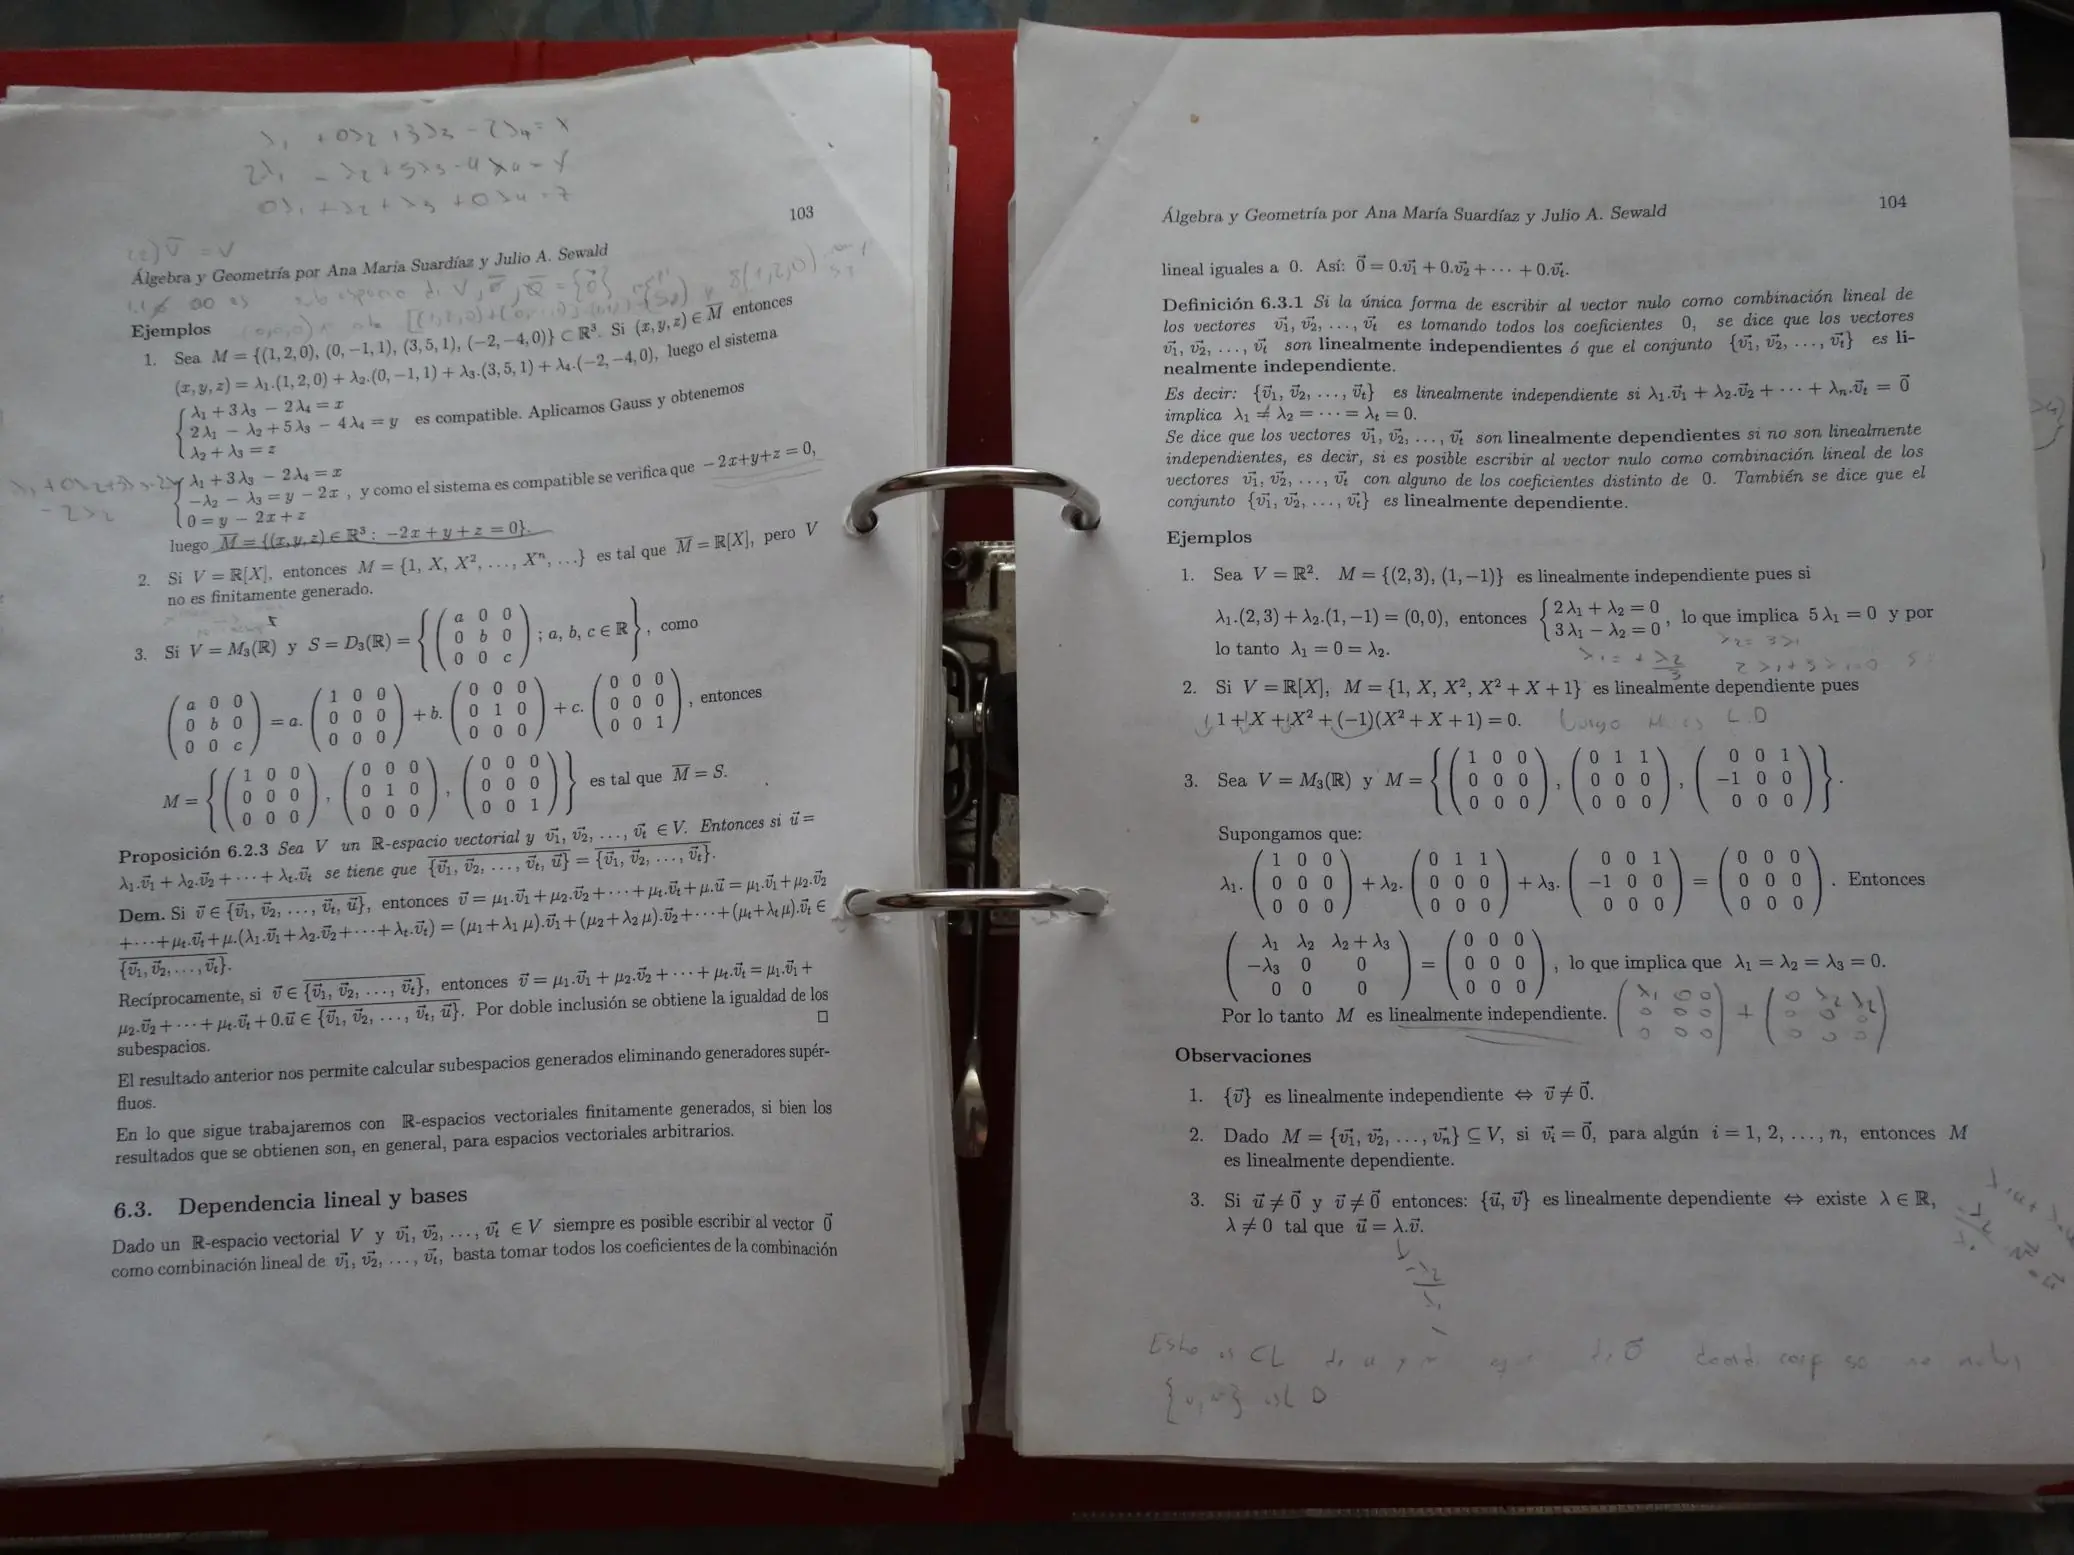 λ₁ + 0λ₂ + 3λ₃ - 2λ₄ = x
2λ₁ - λ₂ + 5λ₃ - 4λ₄ = y
0λ₁ + λ₂ + λ₃ + 0λ₄ = z
103
Álgebra y Geometría por Ana María Suardíaz y Julio A. Sewald
Ejemplos
1. Sea M = {(1,2,0), (0,−1,1), (3,5,1), (−2,−4,0)} ⊂ ℝ³. Si (x,y,z) ∈ M̅ entonces
(x,y,z) = λ₁.(1,2,0) + λ₂.(0,−1,1) + λ₃.(3,5,1) + λ₄.(−2,−4,0), luego el sistema
{ λ₁ + 3λ₃ − 2λ₄ = x
2λ₁ − λ₂ + 5λ₃ − 4λ₄ = y es compatible. Aplicamos Gauss y obtenemos
λ₂ + λ₃ = z
{ λ₁ + 3λ₃ − 2λ₄ = x
−λ₂ − λ₃ = y − 2x , y como el sistema es compatible se verifica que −2x+y+z = 0,
0 = y − 2x + z
luego M̅ = {(x,y,z) ∈ ℝ³ : −2x + y + z = 0}.
2. Si V = ℝ[X], entonces M = {1, X, X², ..., Xⁿ, ...} es tal que M̅ = ℝ[X], pero V
no es finitamente generado.
3. Si V = M₃(ℝ) y S = D₃(ℝ) = { ( a 0 0 / 0 b 0 / 0 0 c ) ; a, b, c ∈ ℝ }, como
( a 0 0 / 0 b 0 / 0 0 c ) = a. ( 1 0 0 / 0 0 0 / 0 0 0 ) + b. ( 0 0 0 / 0 1 0 / 0 0 0 ) + c. ( 0 0 0 / 0 0 0 / 0 0 1 ), entonces
M = { ( 1 0 0 / 0 0 0 / 0 0 0 ), ( 0 0 0 / 0 1 0 / 0 0 0 ), ( 0 0 0 / 0 0 0 / 0 0 1 ) } es tal que M̅ = S.
Proposición 6.2.3 Sea V un ℝ-espacio vectorial y v⃗₁, v⃗₂, ..., v⃗ₜ ∈ V. Entonces si u⃗ =
λ₁.v⃗₁ + λ₂.v⃗₂ + ··· + λₜ.v⃗ₜ se tiene que \overline{{v⃗₁, v⃗₂, ..., v⃗ₜ, u⃗}} = \overline{{v⃗₁, v⃗₂, ..., v⃗ₜ}}.
Dem. Si v⃗ ∈ \overline{{v⃗₁, v⃗₂, ..., v⃗ₜ, u⃗}}, entonces v⃗ = μ₁.v⃗₁+μ₂.v⃗₂+···+μₜ.v⃗ₜ+μ.u⃗ = μ₁.v⃗₁+μ₂.v⃗₂
+···+μₜ.v⃗ₜ+μ.(λ₁.v⃗₁+λ₂.v⃗₂+···+λₜ.v⃗ₜ) = (μ₁+λ₁ μ).v⃗₁+(μ₂+λ₂ μ).v⃗₂+···+(μₜ+λₜ μ).v⃗ₜ ∈
\overline{{v⃗₁, v⃗₂, ..., v⃗ₜ}}.
Recíprocamente, si v⃗ ∈ \overline{{v⃗₁, v⃗₂, ..., v⃗ₜ}}, entonces v⃗ = μ₁.v⃗₁ + μ₂.v⃗₂ + ··· + μₜ.v⃗ₜ = μ₁.v⃗₁+
μ₂.v⃗₂+···+μₜ.v⃗ₜ+0.u⃗ ∈ \overline{{v⃗₁, v⃗₂, ..., v⃗ₜ, u⃗}}. Por doble inclusión se obtiene la igualdad de los
subespacios. □
El resultado anterior nos permite calcular subespacios generados eliminando generadores supér-
fluos.
En lo que sigue trabajaremos con ℝ-espacios vectoriales finitamente generados, si bien los
resultados que se obtienen son, en general, para espacios vectoriales arbitrarios.
6.3. Dependencia lineal y bases
Dado un ℝ-espacio vectorial V y v⃗₁, v⃗₂, ..., v⃗ₜ ∈ V siempre es posible escribir al vector 0⃗
como combinación lineal de v⃗₁, v⃗₂, ..., v⃗ₜ, basta tomar todos los coeficientes de la combinación
Álgebra y Geometría por Ana María Suardíaz y Julio A. Sewald 104
lineal iguales a 0. Así: 0⃗ = 0.v⃗₁ + 0.v⃗₂ + ··· + 0.v⃗ₜ.
Definición 6.3.1 Si la única forma de escribir al vector nulo como combinación lineal de
los vectores v⃗₁, v⃗₂, ..., v⃗ₜ es tomando todos los coeficientes 0, se dice que los vectores
v⃗₁, v⃗₂, ..., v⃗ₜ son linealmente independientes ó que el conjunto {v⃗₁, v⃗₂, ..., v⃗ₜ} es li-
nealmente independiente.
Es decir: {v⃗₁, v⃗₂, ..., v⃗ₜ} es linealmente independiente si λ₁.v⃗₁ + λ₂.v⃗₂ + ··· + λₙ.v⃗ₜ = 0⃗
implica λ₁ = λ₂ = ··· = λₜ = 0.
Se dice que los vectores v⃗₁, v⃗₂, ..., v⃗ₜ son linealmente dependientes si no son linealmente
independientes, es decir, si es posible escribir al vector nulo como combinación lineal de los
vectores v⃗₁, v⃗₂, ..., v⃗ₜ con alguno de los coeficientes distinto de 0. También se dice que el
conjunto {v⃗₁, v⃗₂, ..., v⃗ₜ} es linealmente dependiente.
Ejemplos
1. Sea V = ℝ². M = {(2,3), (1,−1)} es linealmente independiente pues si
λ₁.(2,3) + λ₂.(1,−1) = (0,0), entonces { 2λ₁ + λ₂ = 0 / 3λ₁ − λ₂ = 0 , lo que implica 5λ₁ = 0 y por
lo tanto λ₁ = 0 = λ₂.
2. Si V = ℝ[X], M = {1, X, X², X² + X + 1} es linealmente dependiente pues
1 + X + X² + (−1)(X² + X + 1) = 0. Luego M es L.D
3. Sea V = M₃(ℝ) y M = { ( 1 0 0 / 0 0 0 / 0 0 0 ), ( 0 1 1 / 0 0 0 / 0 0 0 ), ( 0 0 1 / −1 0 0 / 0 0 0 ) }.
Supongamos que:
λ₁. ( 1 0 0 / 0 0 0 / 0 0 0 ) + λ₂. ( 0 1 1 / 0 0 0 / 0 0 0 ) + λ₃. ( 0 0 1 / −1 0 0 / 0 0 0 ) = ( 0 0 0 / 0 0 0 / 0 0 0 ). Entonces
( λ₁ λ₂ λ₂+λ₃ / −λ₃ 0 0 / 0 0 0 ) = ( 0 0 0 / 0 0 0 / 0 0 0 ), lo que implica que λ₁ = λ₂ = λ₃ = 0.
Por lo tanto M es linealmente independiente. ( λ₁ 0 0 / 0 0 0 / 0 0 0 ) + ( 0 λ₂ λ₂ / 0 0 0 / 0 0 0 )
Observaciones
1. {v⃗} es linealmente independiente ⇔ v⃗ ≠ 0⃗.
2. Dado M = {v⃗₁, v⃗₂, ..., v⃗ₙ} ⊆ V, si v⃗ᵢ = 0⃗, para algún i = 1, 2, ..., n, entonces M
es linealmente dependiente.
3. Si u⃗ ≠ 0⃗ y v⃗ ≠ 0⃗ entonces: {u⃗, v⃗} es linealmente dependiente ⇔ existe λ ∈ ℝ,
λ ≠ 0 tal que u⃗ = λ.v⃗.
Esto es CL de u y v
{u, v} es L D